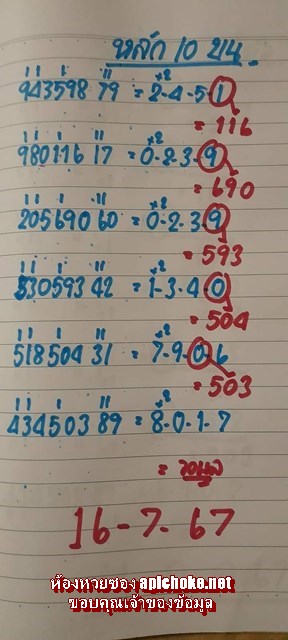 หลัก 10 บน
943598 79 = 2-4-5-1
= 116
980116 17 = 0-2-3-9
= 690
205690 60 = 0-2-3-9
= 593
530593 42 = 1-3-4-0
= 504
518504 31 = 7-9-0-6
= 503
434503 89 = 8-0-1-7
= รอผล
16-7-67
ห้องหวยซอง apichoke.net
ขอบคุณเจ้าของข้อมูล